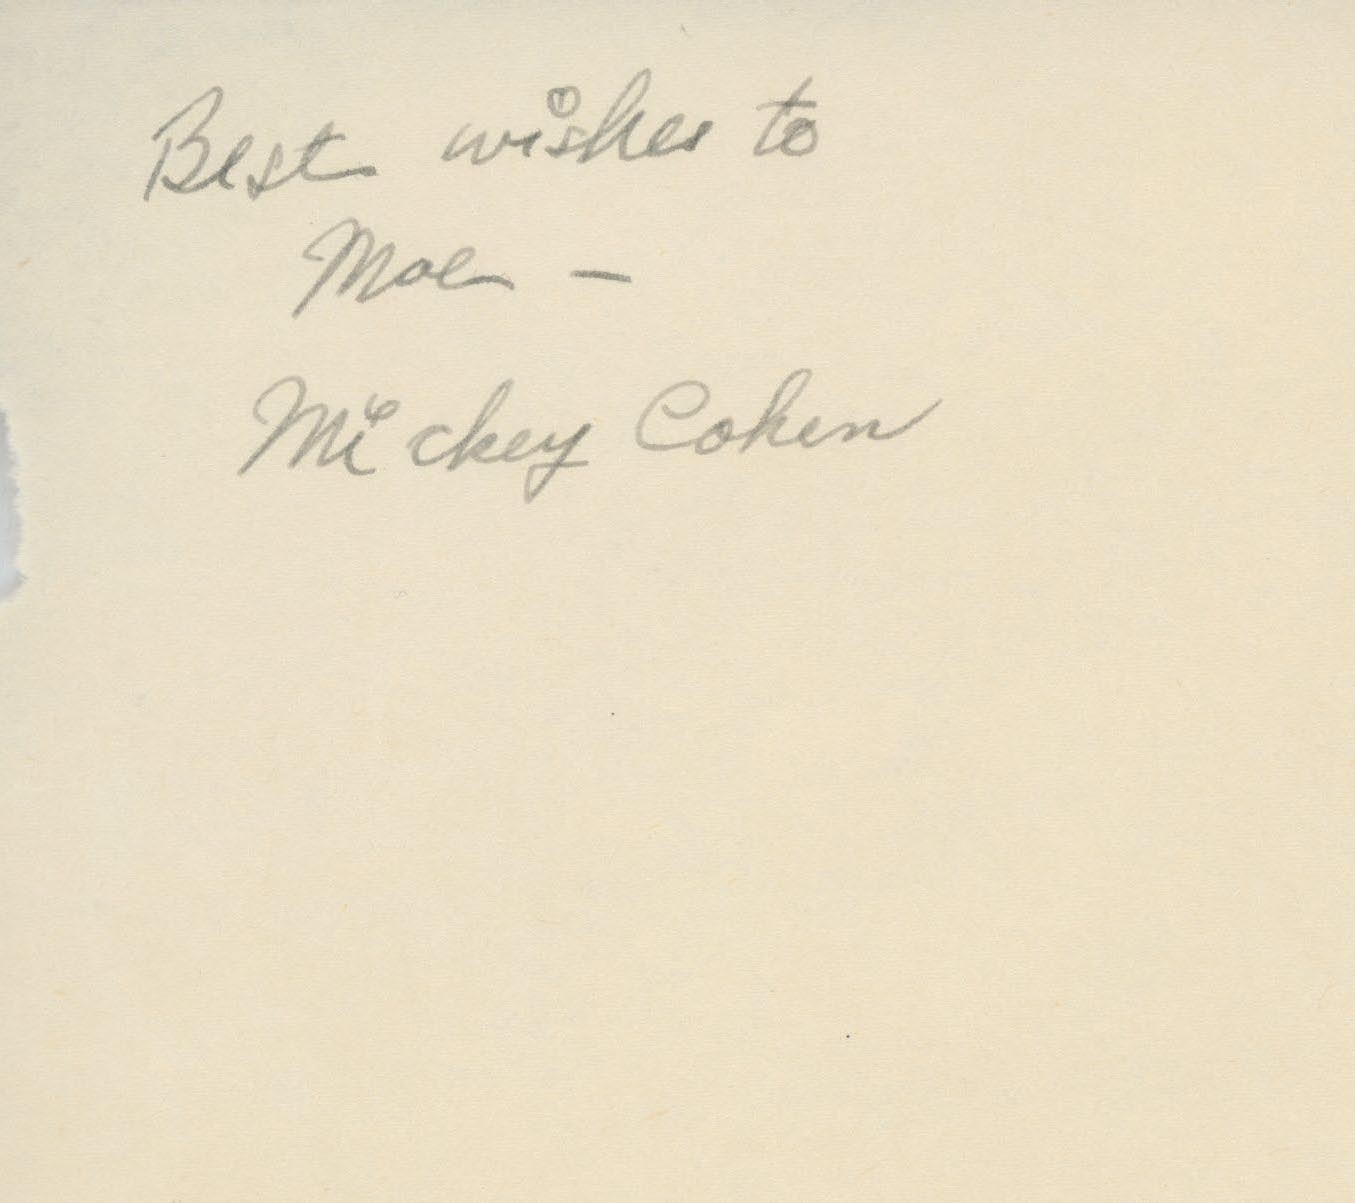 Best wishes to
Moe –
Mickey Cohen